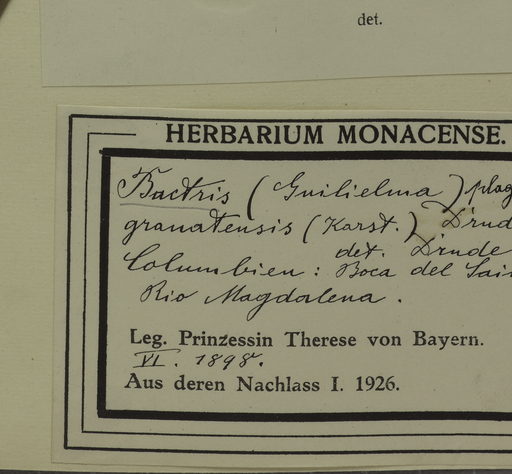 det.
HERBARIUM MONACENSE.
Bactris (Guilielma) plag
granatensis (Karst.) Drud
det. Drude
Columbien: Boca del Sai
Rio Magdalena.
Leg. Prinzessin Therese von Bayern.
VI. 1898.
Aus deren Nachlass I. 1926.